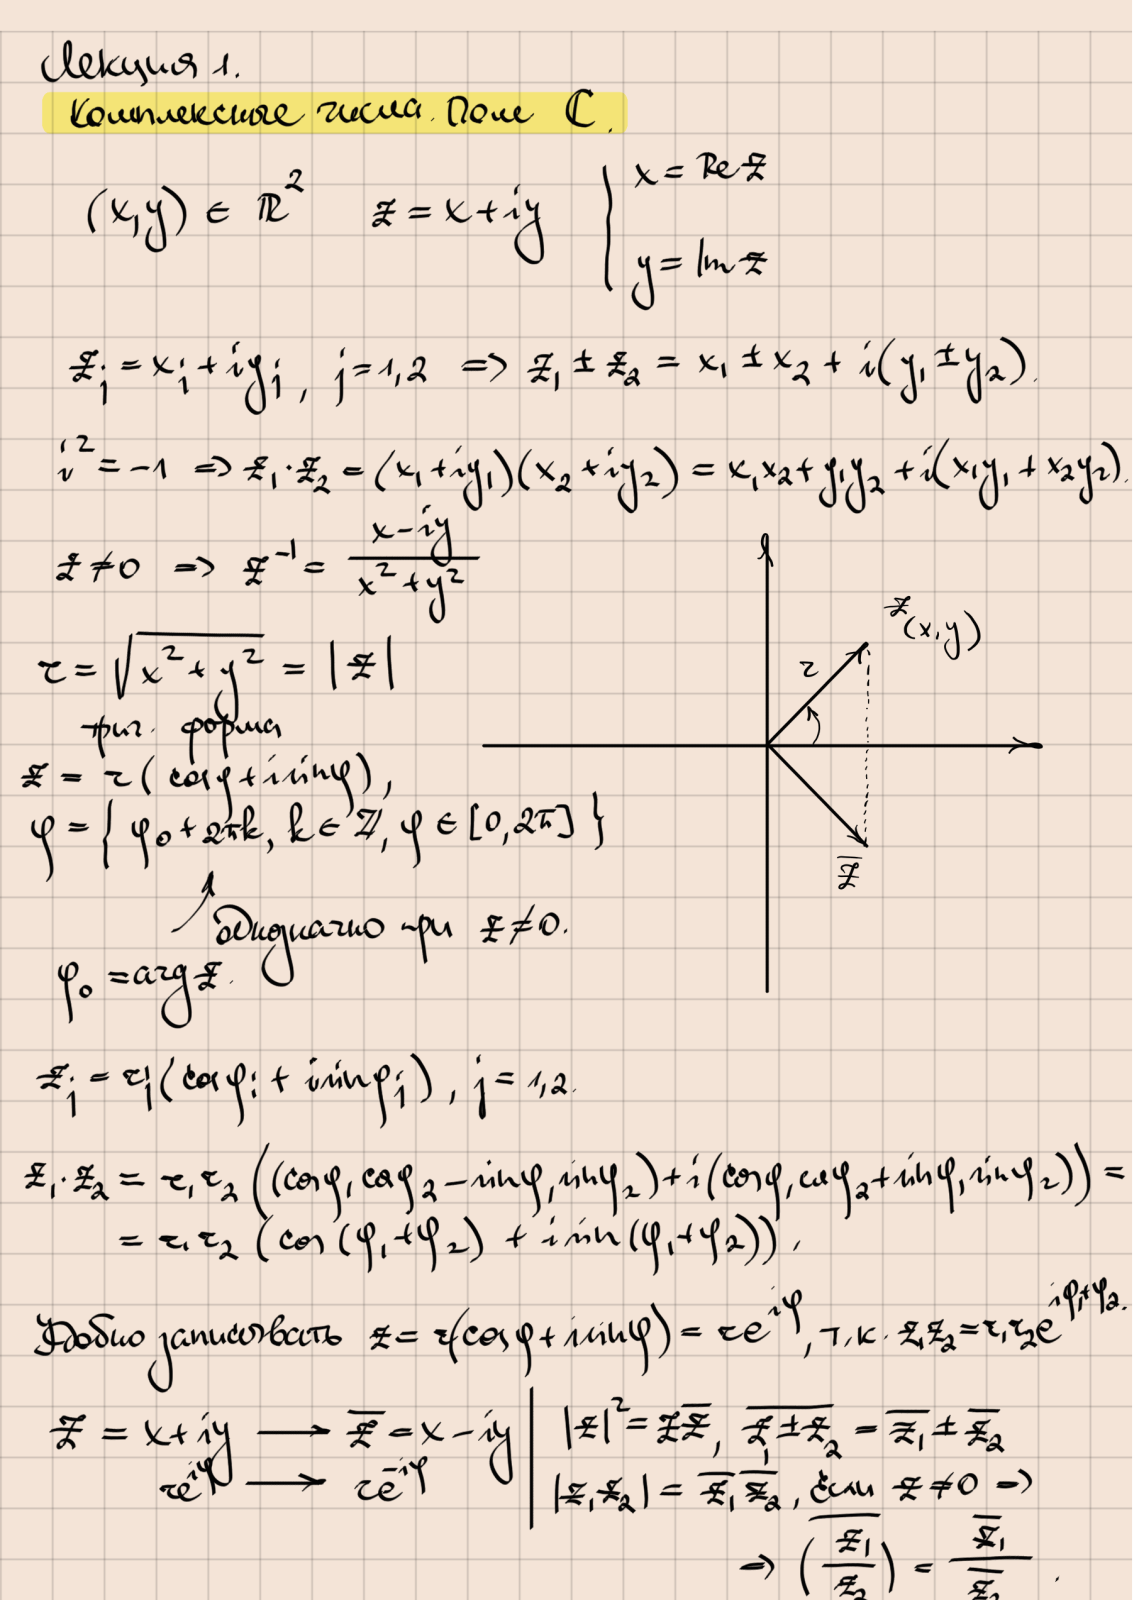 Лекция 1.
Комплексные числа. Поле ℂ.
(x,y) ∈ ℝ² z = x + iy { x = Re z
y = Im z
z_j = x_j + iy_j, j = 1,2 => z₁ ± z₂ = x₁ ± x₂ + i(y₁ ± y₂).
i² = -1 => z₁·z₂ = (x₁+iy₁)(x₂+iy₂) = x₁x₂ + y₁y₂ + i(x₁y₁ + x₂y₂).
z ≠ 0 => z⁻¹ = (x-iy)/(x²+y²)
r = √(x²+y²) = |z|
z (x,y)
r
триг. форма
z = r(cosφ + i sinφ),
φ = { φ₀ + 2πk, k ∈ ℤ, φ ∈ [0, 2π] }
z̅
однозначно при z ≠ 0.
φ₀ = arg z.
z_j = r_j(cosφ_j + i sinφ_j), j = 1,2.
z₁·z₂ = r₁r₂((cosφ₁cosφ₂ - sinφ₁sinφ₂) + i(cosφ₁cosφ₂ + sinφ₁sinφ₂)) =
= r₁r₂(cos(φ₁+φ₂) + i sin(φ₁+φ₂)),
Удобно записывать z = r(cosφ + i sinφ) = re^{iφ}, т.к. z₁z₂ = r₁r₂e^{iφ₁+φ₂}.
z = x + iy ⟶ z̅ = x - iy | |z|² = zz̅, \overline{z₁ ± z₂} = z̅₁ ± z̅₂
re^{iφ} ⟶ re^{-iφ} | |z₁z₂| = z̅₁z̅₂, если z ≠ 0 =>
=> \overline{(z₁/z₂)} = z̅₁/z̅₂.